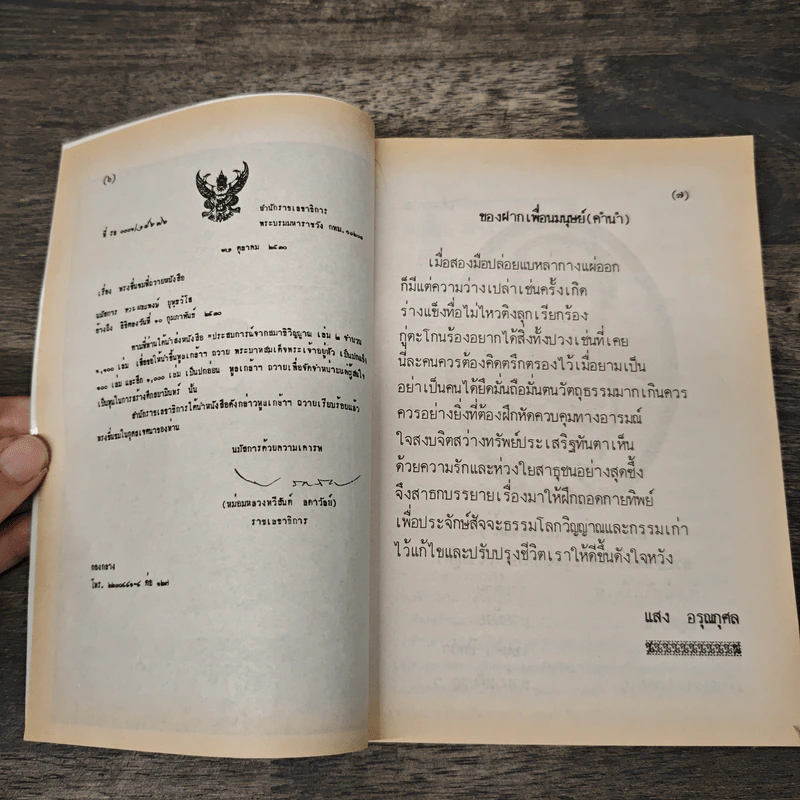 (๖)
ที่ รล ๐๐๐๑/
สำนักราชเลขาธิการ
พระบรมมหาราชวัง กทม. ๑๐๒๐๐
๓๑ ตุลาคม ๒๕๓๐
เรื่อง ทรงชื่นชมที่ถวายหนังสือ
นมัสการ
อ้างถึง ลิขิตลงวันที่ ๑๐ กุมภาพันธ์ ๒๕๓๐
ตามที่ท่านได้นำส่งหนังสือ "ประสบการณ์จากสมาธิวิญญาณ เล่ม ๒ จำนวน
๑,๑๐๐ เล่ม เพื่อขอให้นำขึ้นทูลเกล้าฯ ถวาย พระบาทสมเด็จพระเจ้าอยู่หัว เป็นปกแข็ง
๑๐๐ เล่ม และอีก ๑,๐๐๐ เล่ม เป็นปกอ่อน ทูลเกล้าฯ ถวายเพื่อจัดจำหน่ายแด่ผู้สนใจ
เป็นทุนในการสร้างตึกสยามินทร์ นั้น
สำนักราชเลขาธิการได้นำหนังสือดังกล่าวทูลเกล้าฯ ถวายเรียบร้อยแล้ว
ทรงชื่นชมในกุศลเจตนาของท่าน
นมัสการด้วยความเคารพ
(หม่อมหลวงทวีสันต์ ลดาวัลย์)
ราชเลขาธิการ
กองกลาง
โทร. ๒๒๐๘๔๑-๔ ต่อ ๑๒๗
(๗)
ของฝากเพื่อนมนุษย์(คำนำ)
เมื่อสองมือปล่อยแบหล่ากางแผ่ออก
ก็มีแต่ความว่างเปล่าเช่นครั้งเกิด
ร่างแข็งทื่อไม่ไหวติงลุกเรียกร้อง
กู่ตะโกนร้องอยากได้สิ่งทั้งปวงเช่นที่เคย
นี่ละคนควรต้องคิดตรึกตรองไว้เมื่อยามเป็น
อย่าเป็นคนได้ยึดมั่นถือมั่นตนวัตถุธรรมมากเกินควร
ควรอย่างยิ่งที่ต้องฝึกหัดควบคุมทางอารมณ์
ใจสงบจิตสว่างทรัพย์ประเสริฐทันตาเห็น
ด้วยความรักและห่วงใยสาธุชนอย่างสุดซึ้ง
จึงสาธกบรรยายเรื่องมาให้ฝึกถอดกายทิพย์
เพื่อประจักษ์สัจจะธรรมโลกวิญญาณและกรรมเก่า
ไว้แก้ไขและปรับปรุงชีวิตเราให้ดีขึ้นดังใจหวัง
แสง อรุณกุศล